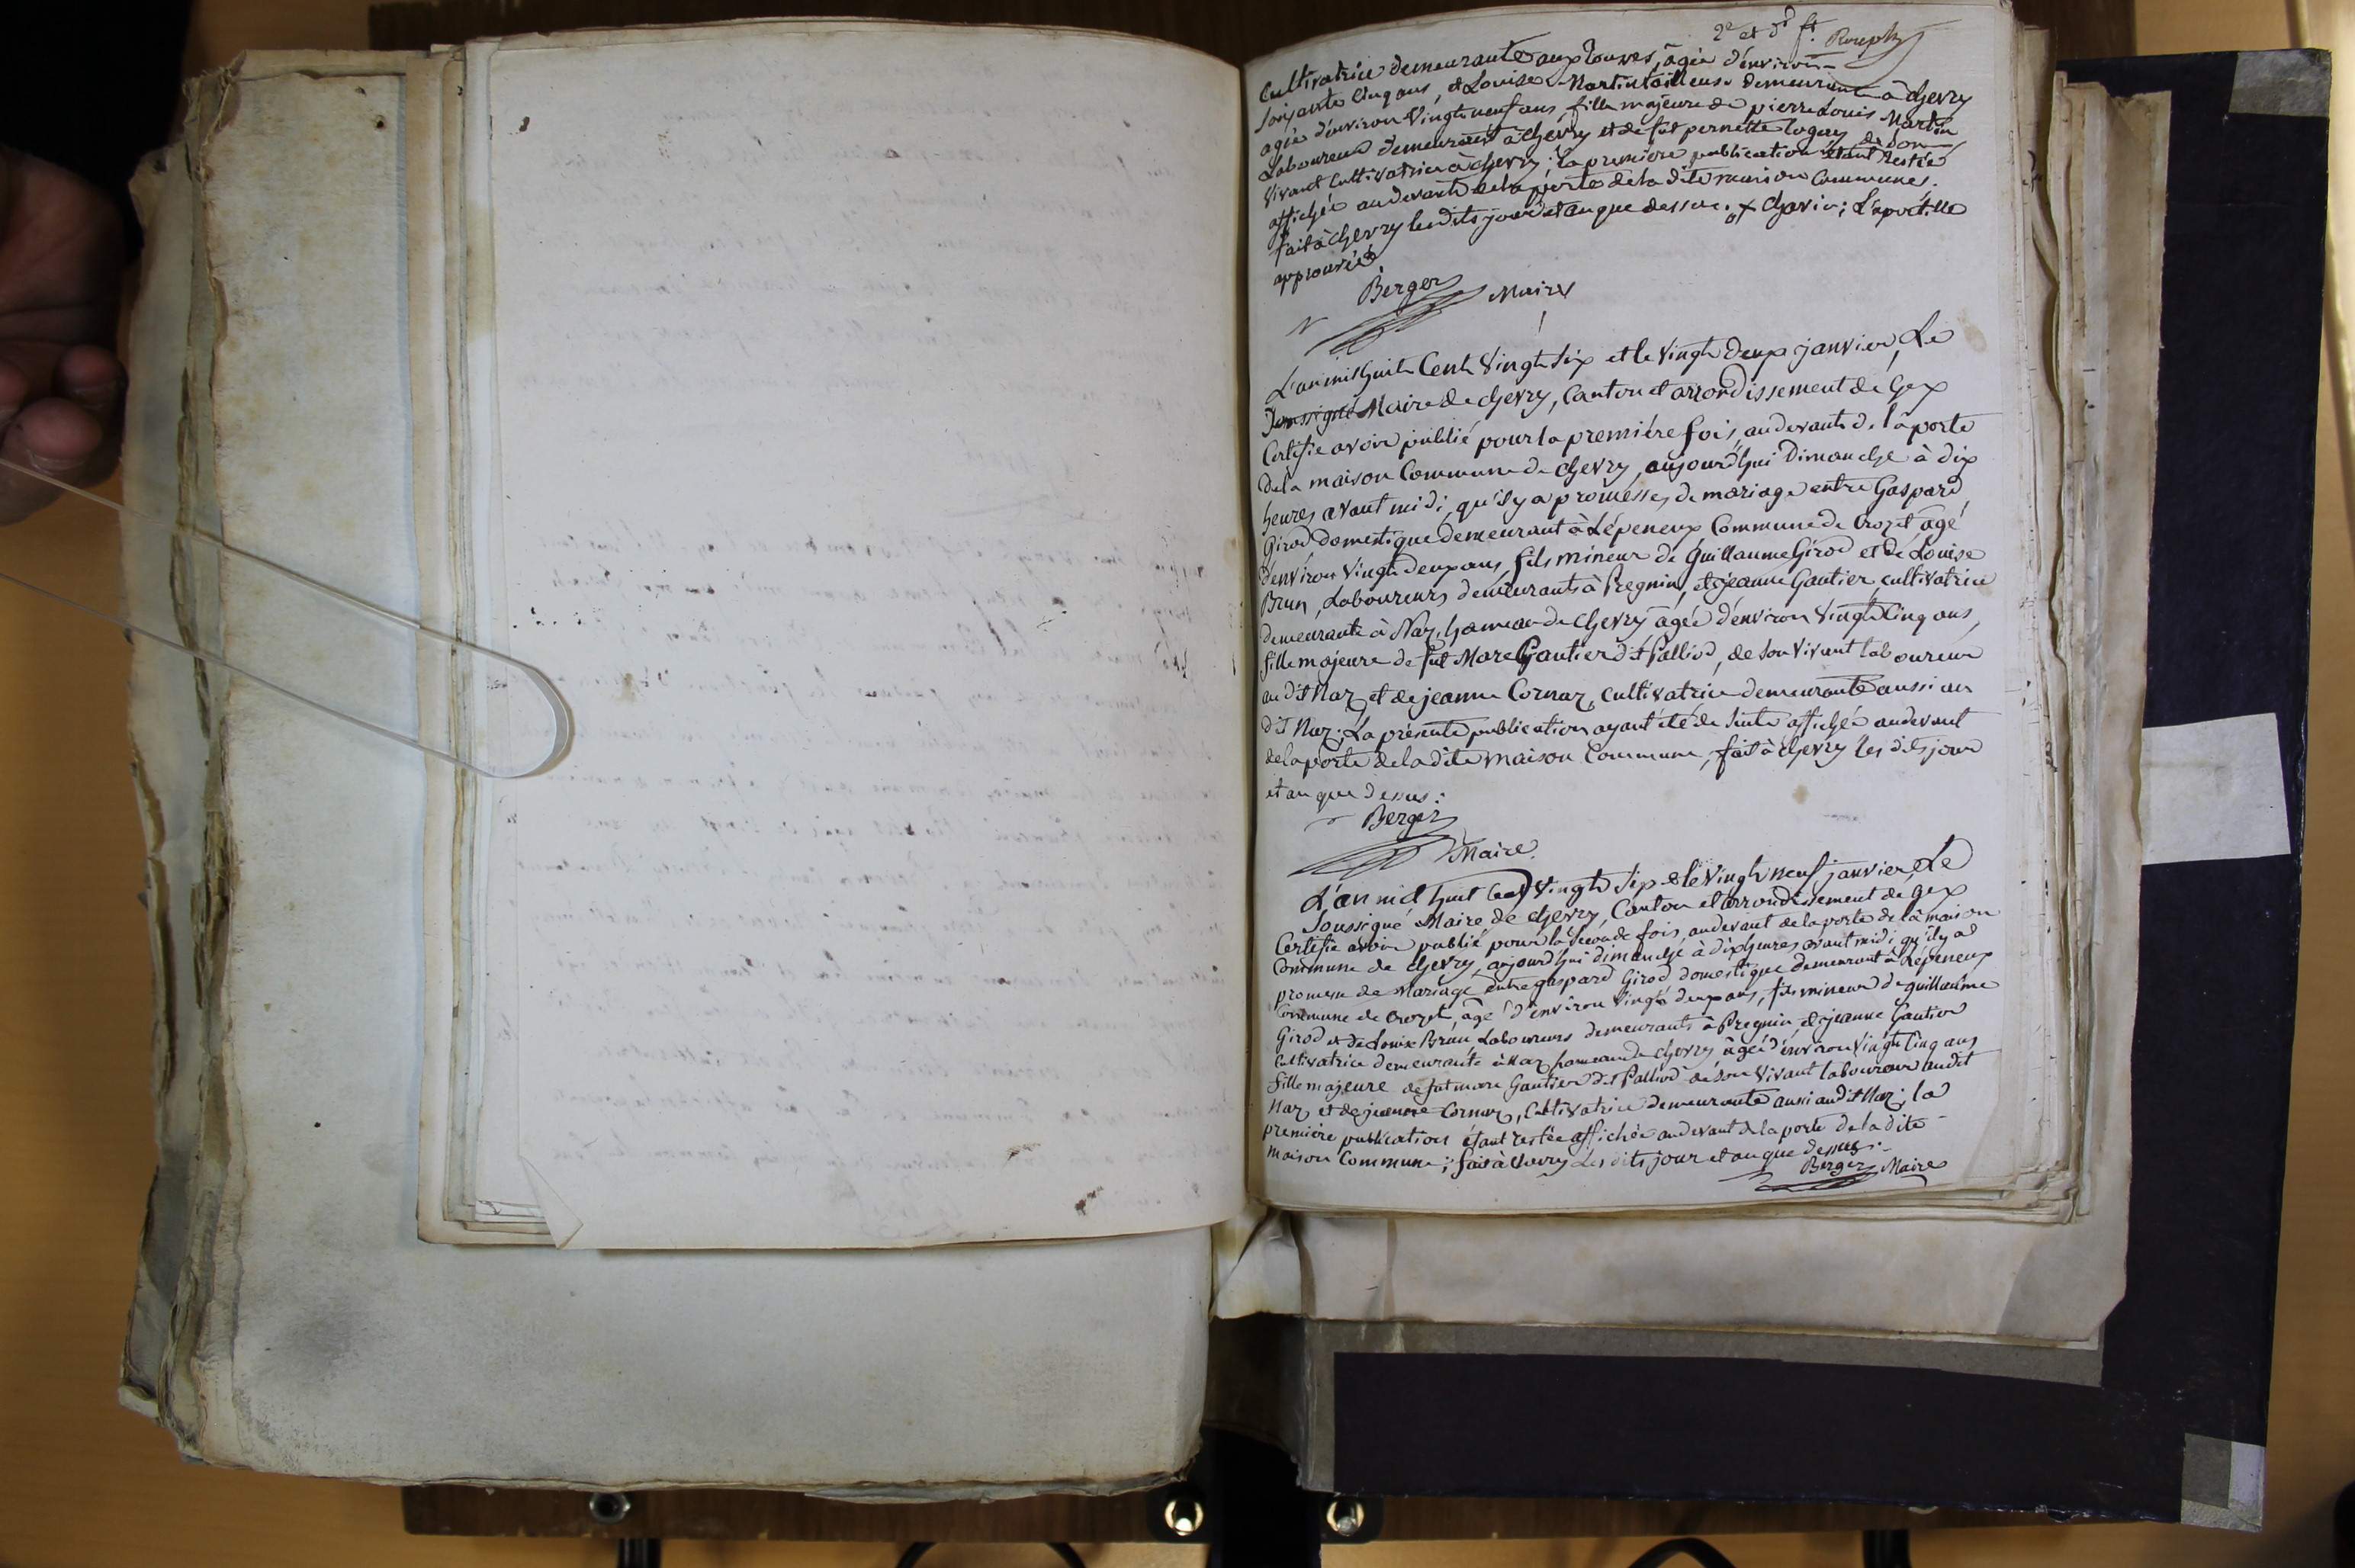 2e et Dr ft.
Cultivatrice demeurante aux Touves, agée d'environ
soixante Cinq ans, et Louise Martin tailleuse demeurante à chevry
agée d'environ Vingt neuf ans, fille majeure de pierre Louis Martin
Laboureur demeurant à chevry et de fut pernette Logay de son
Vivant Cultivatrice à chevry; la première publication étant restée
affichée audevant de la porte de la dite maison Communes.
fait à chevry les dits jour et an que dessus. x L'apostille
approuvée
Berger Maire
L'an mil huit Cent Vingt six et le Vingt deux janvier, Le
Soussigné Maire de chevry, Canton et arrondissement de Gex
Certifie avoir publié pour la première fois, audevant de la porte
dela maison Commune de chevry, aujourd'hui Dimanche à dix
heures avant midi, qu'il y a promesses de mariage entre Gaspard
Girod domestique demeurant à Lépeneux Commune de Crozet agé
d'environ Vingt deux ans, fils mineur de Guillaume Girod et de Louise
Brun, Laboureurs demeurants à Pregnin, et jeanne Gautier, cultivatrice
demeurante à Naz, hameau de chevry agée d'environ Vingt Cinq ans,
fille majeure de fut Marc Gautier dit Palliod, de son Vivant laboureur
au dit Naz et de jeanne Cornaz, cultivatrice demeurante aussi au
dit Naz; La présente publication ayant été de suite affichée audevant
de la porte de la dite maison Commune, fait à chevry les dits jour
et an que dessus:
Berger
Maire
L'an mil huit Cent Vingt six et le Vingt neuf janvier, Le
Soussigné Maire de chevry, Canton et arrondissement de Gex
Certifie avoir publié pour la seconde fois, audevant de la porte de la maison
Commune de chevry, aujourd'hui dimanche à dix heures avant midi, qu'il y a
promesse de Mariage entre gaspard Girod domestique demeurant à Lépeneux
Commune de Crozet agé d'environ Vingt deux ans, fils mineur de guillaume
Girod et de Louise Brun, Laboureurs demeurants à Pregnin, et jeanne Gautier
Cultivatrice demeurante à Naz hameau de chevry agée d'environ Vingt Cinq ans
fille majeure de fut marc Gautier dit Palliod de son Vivant laboureur audit
Naz et de jeanne Cornaz, Cultivatrice demeurante aussi audit Naz; la
première publication étant restée affichée audevant de la porte de la dite
maison Commune; fait à Chevry les dits jour et an que dessus:
Berger Maire